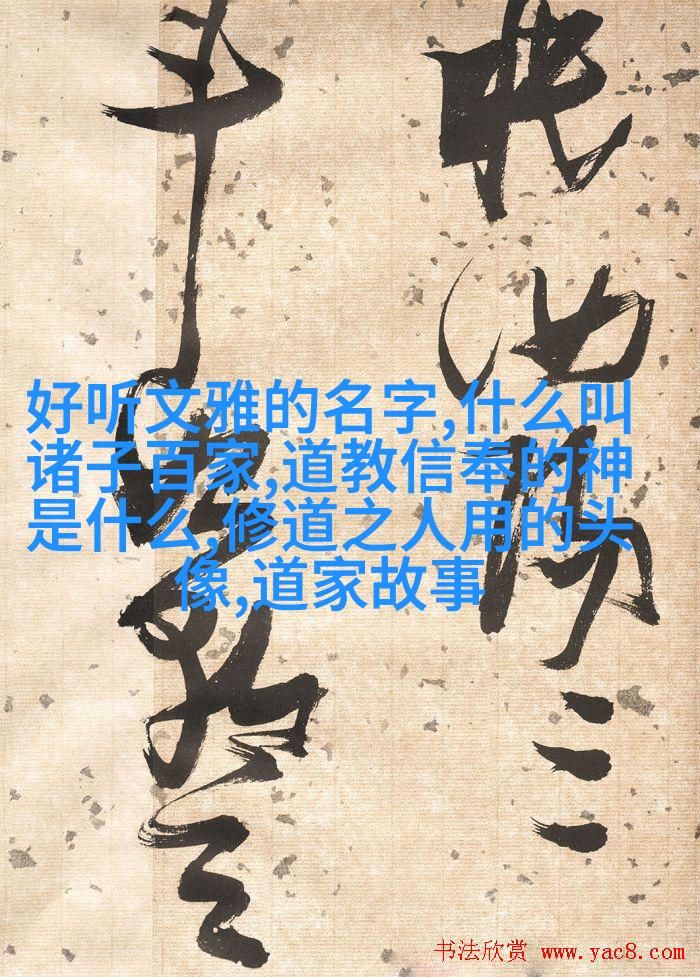 眠汝陽三
斗始朝天
好听文雅的名字,什么叫
诸子百家,道教信奉的神
是什么,修道之人用的头
像,道家故事
书法欣赏 www.yac8.com